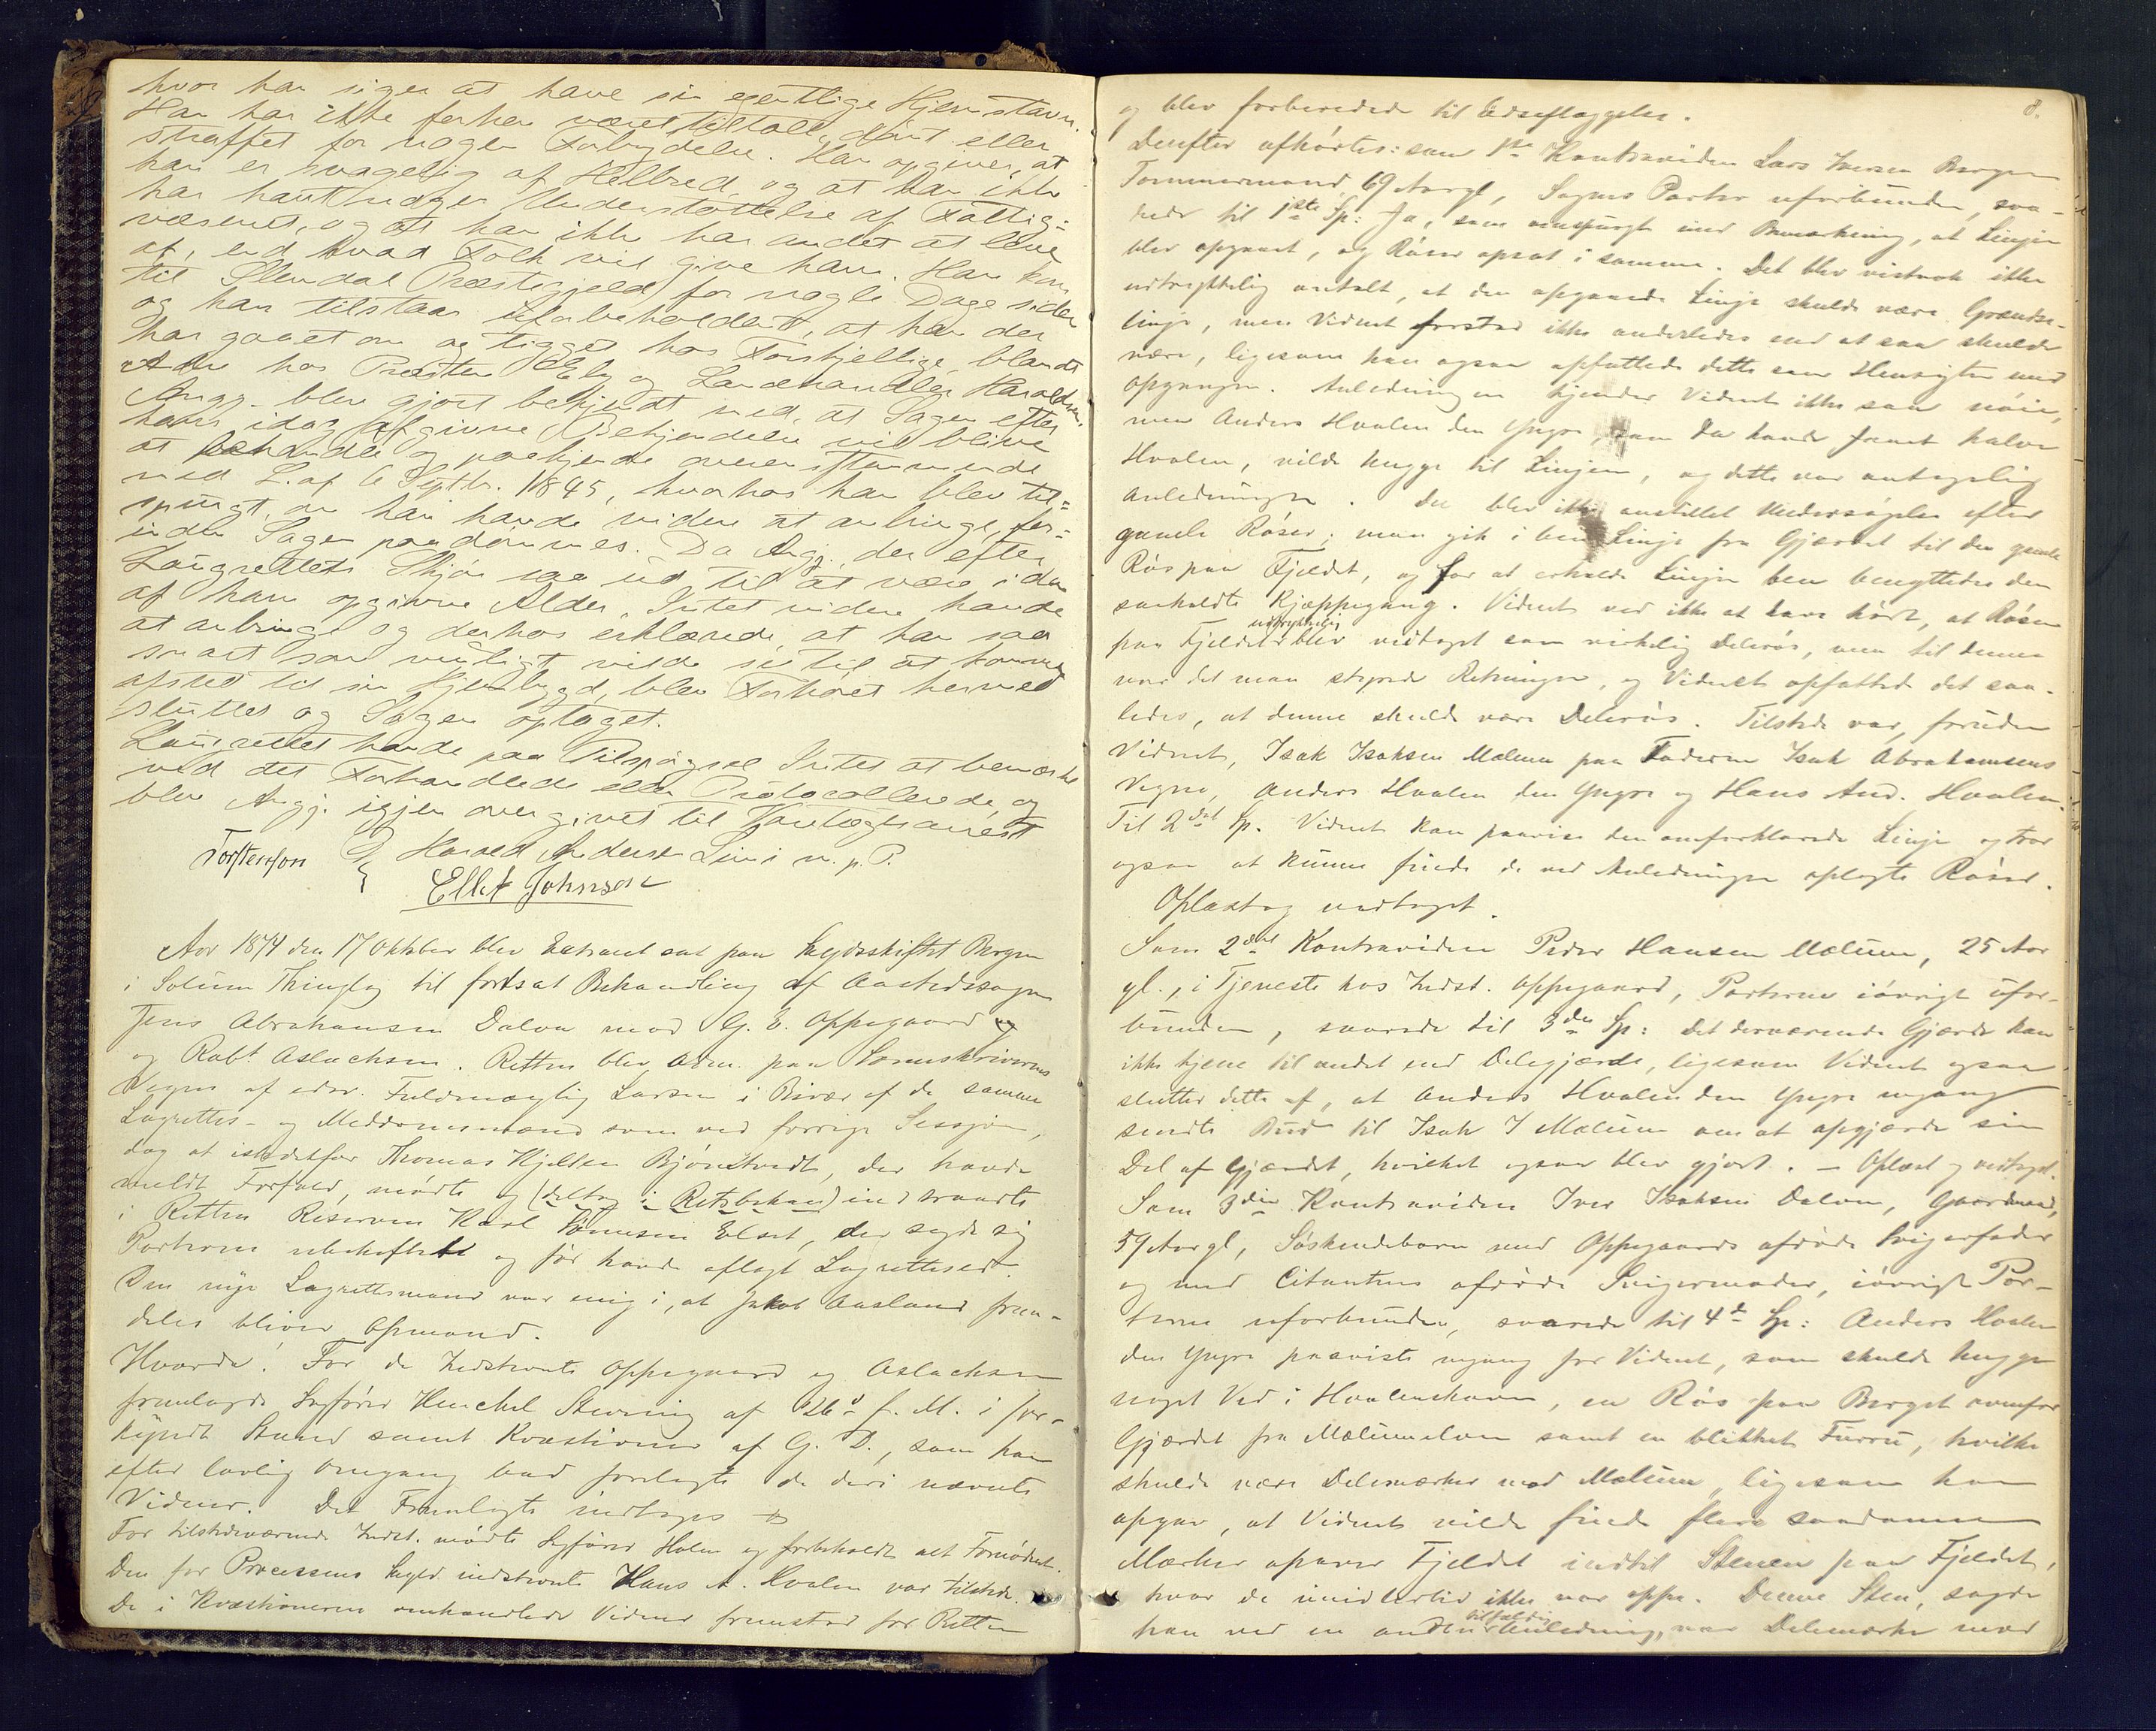 hvor han siger at have sin egentlige Hjemstavn.
Han har ikke forhen været tiltalt, dømt eller
straffet for nogen Forbrydelse. Han opgiver, at
han er svagelig af Helbred, og at han ikke
har havt nogen Understøttelse af Fattig-
væsenet, og at han ikke har andet at leve
af, end hvad Folk vil give ham. Han kom
til Slemdal Præstegjeld for nogle Dage siden
og han tilstaar uforbeholdent, at han der
har gaaet om og tigget hos Forskjellige, blandt
Andre hos Præsten Eby og Landhandler Haraldsen.
Angj. blev gjort bekjendt med, at Sagen efter
hans idag afgivne Bekjendelse vil blive
at behandle og paakjende overensstemmende
med L. af 6 Septbr. 1845, hvorhos han blev til-
spurgt, om han havde videre at anbringe, for-
inden Sagen paadømmes. Da Angj., der efter
Laugrettets Skjøn saa ud til at være i den
af ham opgivne Alder, Intet videre havde
at anbringe og derhos erklærede, at han saa
snart som muligt vilde se til at komme
afsted til sin Hjembygd, blev Forhøret hermed
sluttet og Sagen optaget.
Laugrettet havde paa Tilspørgsel Intet at bemærke
ved det Forhandlede eller Protocollerede, og
blev Angj. igjen overgivet til Varetægtsarrest
Torstenson Harald Andersen Lini m. p. P.
Ellef Johnsen
Aar 1874 den 17 Oktober blev Extraret sat paa Skydsskiftet Bergen
i Solum Thinglag til fortsat Behandling af Aastedssagen
Jens Abrahamsen Dalva mod G. E. Oppegaard og
og Robt Aslachsen. Retten blev adm. paa Sorenskriverens
Vegne af edsv. Fuldmægtig Larsen i Bivær af de samme
Lagrettes- og Meddomsmænd som ved forrige Session,
dog at istedetfor Thomas Kjeldsen Bjørntvedt, der havde
meldt Forfald, mødte og (deltog i Retsbehan) indtraadte
i Retten Reserven Karl Tønnesen Elset, der sagde sig
Parterne ubeheftet og før havde aflagt Lagrettesed.
Den nye Lagrettesmand var enig i, at Jakob Aasland frem-
deles bliver Opmand.
Hvorda! For de Indstevnte Oppegaard og Aslachsen
fremlagde Sagfører Henchel Stevning af 26d f. M. i for-
kyndt Stand samt Kvæstioner af G. D., som han
efter lovlig Omgang bad forelagte de deri nævnte
Vidner. Det Fremlagte indtages
For tilstedeværende Indst. mødte Sagfører Holm og forbeholdt alt Fornødent.
Den for Processens Skyld indstevnte Hans A. Hvalen var tilstede.
De i Kvæstionerne omhandlede Vidner fremstod for Retten
8.
og blev forberedede til Edsaflæggelse.
Derefter afhørtes: som 1ste Kontravidne Lars Iversen Bergen
Tømmermand, 69 Aar gl, Sagens Parter uforbunden, sva-
rede til 1ste Sp: Ja, som omspurgt med Bemærkning, at Linjen
blev opgaaet, og Røser opsat i samme. Det blev vistnok ikke
udtrykkelig omtalt, at den opgaaede Linje skulde være Grændse-
linje, men Vidnet forstod ikke anderledes end at saa skulde
være, ligesom han ogsaa opfattede dette som Hensigten med
Opgangen. Anledningen kjender Vidnet ikke saa nøie,
men Anders Hvalen den Yngre, som da havde faaet halve
Hvalen, vilde hugge til Linjen, og dette var antagelig
Anledningen. Der blev ikke anstillet Undersøgelse efter
gamle Røser; man gik i ben Linje fra Gjærdet til den gamle
Røs paa Fjeldet, og for at erholde Linjen ben benyttedes den
saakaldte Kjæppegang. Vidnet ved ikke at have hørt, at Røsen
udtrykkelig
paa Fjeldet blev vedtaget som virkelig Delerøs, men til denne
var det man styrede Retningen, og Vidnet opfattede det saa-
ledes, at denne skulde være Delerøs. Tilstede var, foruden
Vidnet, Isak Isaksen Mælum paa Faderen Isak Abrahamsens
Vegne, Anders Hvalen den Yngre og Hans And. Hvalen.
Til 2det Sp. Vidnet kan paavise den omforklarede Linje og tror
ogsaa at kunne finde de ved Anledningen oplagte Røser.
Oplæst og vedtaget.
Som 2det Kontravidne Peder Hansen Mælum, 25 Aar
gl., i Tjeneste hos Indst. Oppegaard, Parterne iøvrigt ufor-
bunden, svarede til 3die Sp: Det derværende Gjærde kan
ikke tjene til andet end Delegjærde, ligesom Vidnet ogsaa
slutter dette af, at Anders Hvalen den Yngre engang
sendte Bud til Isak I Mælum om at opgjærde sin
Del af Gjærdet, hvilket ogsaa blev gjort. – Oplæst og vedtaget.
Som 3die Kontravidne Iver Isaksen Dalven, Gaardmand,
59 Aar gl, Søskendebarn med Oppegaards afdøde Svigerfader
og med Citantens afdøde Svigermoder, iøvrigt Par-
terne uforbunden, svarede til 4de Sp: Anders Hvalen
den Yngre paaviste engang for Vidnet, som skulde hugge
noget Ved i Hvalenskoven, en Røs paa Berget ovenfor
Gjærdet fra Mælumelven samt en blikket Furru, hvilke
skulde være Delemærker mod Mælum, ligesom han
opgav, at Vidnet vilde finde flere saadanne
Mærker opover Fjeldet indtil Stenen paa Fjeldet,
hvor de imidlertid ikke var oppe. Denne Sten, sagde
tilfældig
han ved en anden Anledning, var Delemærke mod